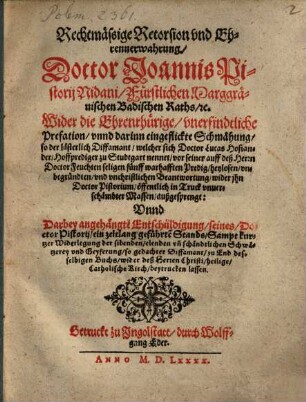 Polem. 2301.
2
Rechtmässige Retorsion vnd Eh-
renverwahrung/
Doctor Joannis Pi-
storij Nidani/ Fürstlichen Marggrä-
uischen Badischen Raths/ ⁊c.
Wider die Ehrenrhürige/ vnerfindliche
Prefation/ vnnd darinn eingeflickte Schmähung/
so der lästerlich Diffamant/ welcher sich Doctor Lucas Hosian-
der/ Hoffprediger zu Studtgart nennet/ vor seiner auff deß Herrn
Doctor Feuchten seligen fünff warhafften Predig/ heylosen/ vn-
begründten/ vnd vnchristlichen Beantwortung/ wider jhn
Doctor Pistorium/ öffentlich in Truck vnuer-
schämbter Massen/ außgesprengt:
Vnnd
Darbey angehängte Entschüldigung/ seines/ Do-
ctor Pistorij/ ein zeitlang geführte Stands/ Sampt kur-
tzer Widerlegung der sibenden/ elenden vñ schändlichen Schwä-
tzerey vnd Geyferung/ so gedachter Diffamant/ zu End des-
selbigen Buchs/ wider deß Herren Christi/ heilige/
Catholische Kirch/ beytrucken lassen.
Getruckt zu Jngolstatt/ durch Wolff-
gang Eder.
ANNO M. D. LXXXX.